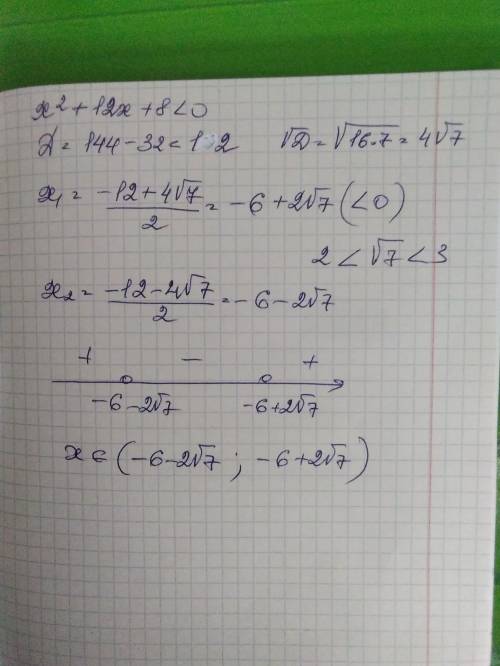 x² + 12x + 8 < 0
D = 144 - 32 = 112 √D = √16·7 = 4√7
x₁ = (-12 + 4√7)/2 = -6 + 2√7 (<0)
2 < √7 < 3
x₂ = (-12 - 4√7)/2 = -6 - 2√7
+ - +
-6-2√7 -6+2√7
x ∈ (-6-2√7 ; -6+2√7)